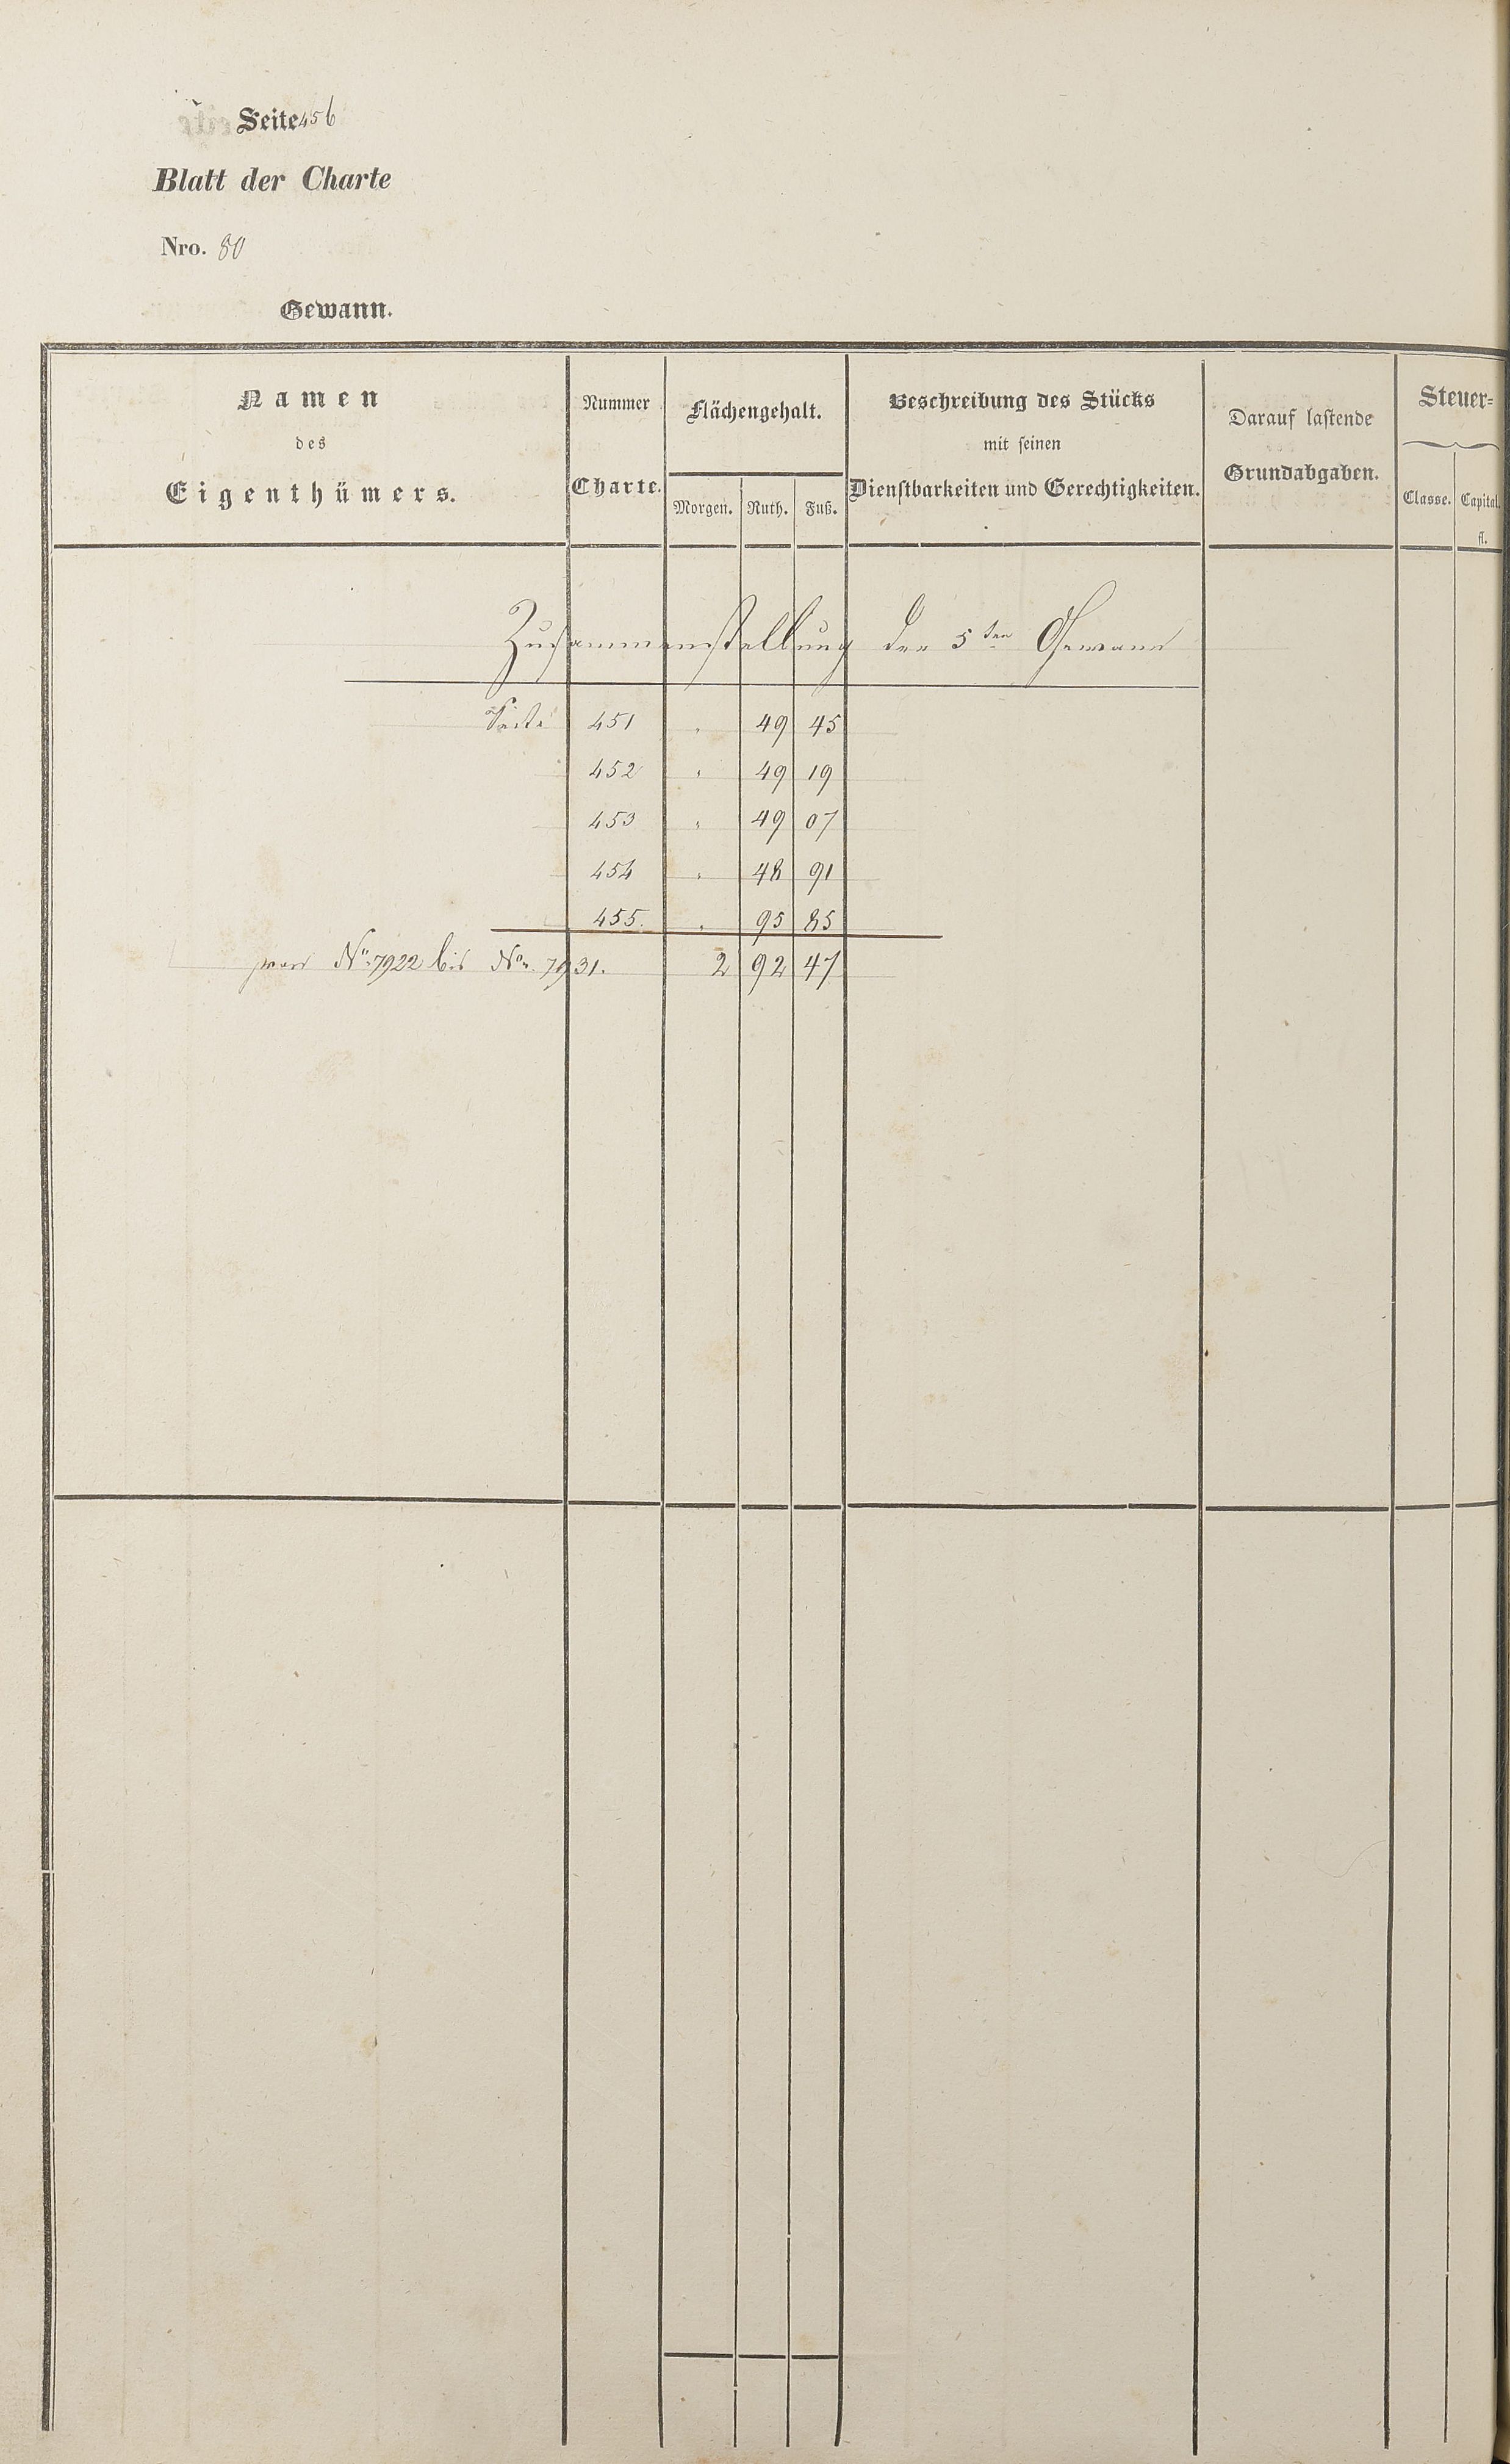 Seite 456
Blatt der Charte
Nro. 80
Gewann.
Namen
des
Eigenthümers.
Nummer
Charte.
Flächengehalt.
Morgen. Ruth. Fuß.
Beschreibung des Stücks
mit seinen
Dienstbarkeiten und Gerechtigkeiten.
Darauf lastende
Grundabgaben.
Steuer-
Classe. Capital.
fl.
Zusammenstellung der 5ten Gewann
Seite 451 " 49 45
452 " 49 19
453 " 49 07
454 " 48 91
455. " 95 85
von No. 7922 bis No. 7931. 2 92 47